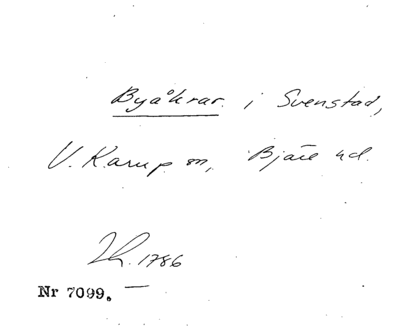 Byåkrar i Svenstad,
V. Karup sn, Bjäre hd.
1786
Nr 7099.